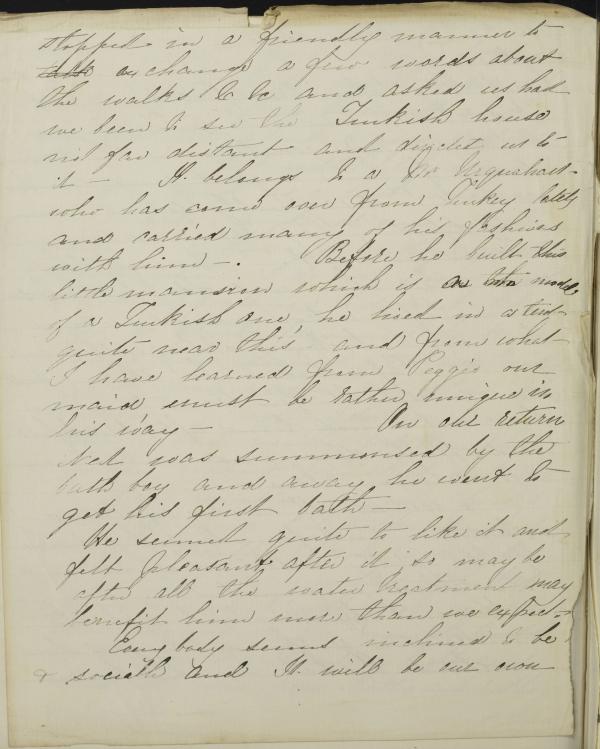 stopped in a friendly manner to
talk exchange a few words about
the walks &c &c and asked us had
we been to see the Turkish house
not far distant and directed us to
it — It belongs to a Mr Urquahart
who has come over from Turkey lately
and carried many of his fashions
with him —. Before he built this
little mansion which is on the model
of a Turkish one, he lived in a tent
quite near this and from what
I have learned from Peggie our
maid must be rather unique in
his way — On our return
Ned was summonsed by the
bath boy and away he went to
get his first bath —
He seemed quite to like it and
felt pleasant after it so may be
after all the water treatment may
benefit him more than we expect —
Every body seems inclined to be
& sociable and It will be our own